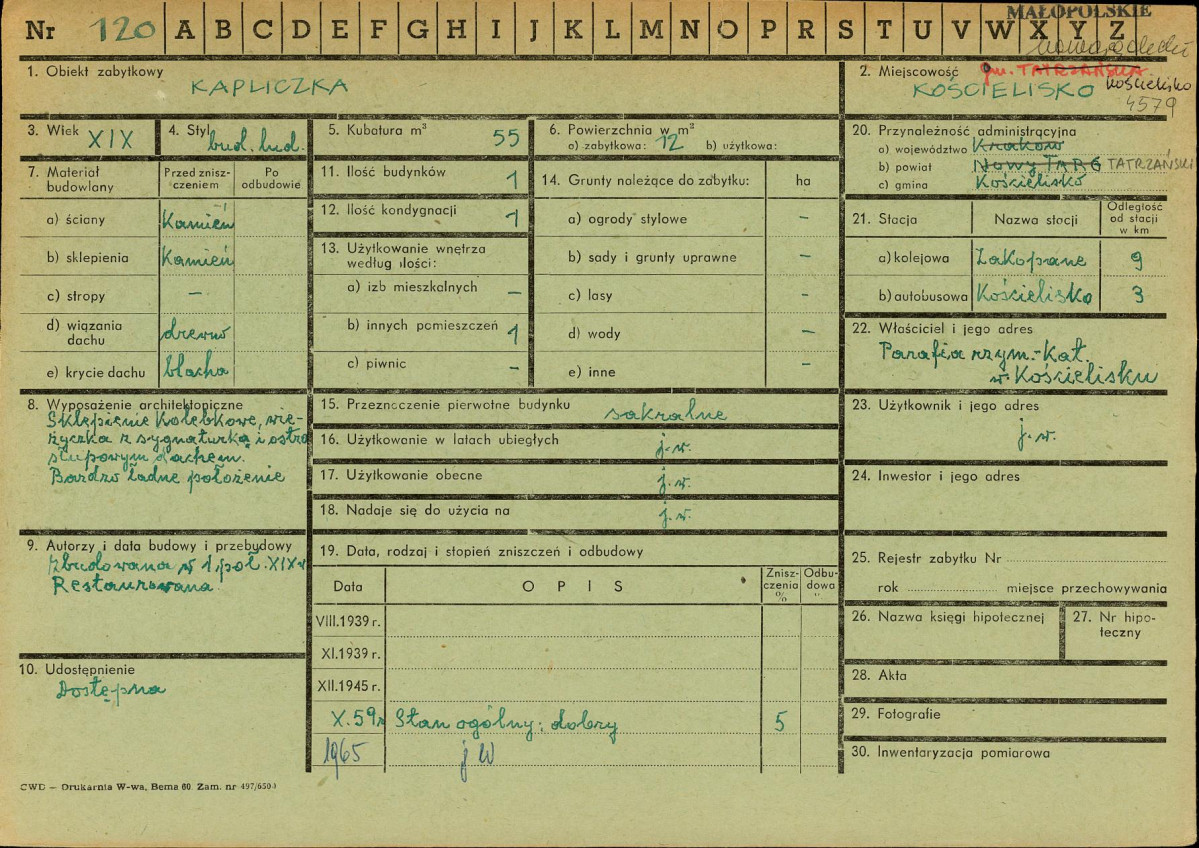 Nr 120 A B C D E F G H I J K L M N O P R S T U V W X Y Z
MAŁOPOLSKIE
nowosądecki
1. Obiekt zabytkowy
KAPLICZKA
2. Miejscowość gm. TATRZAŃSKA
KOŚCIELISKO Kościelisko
4579
3. Wiek XIX
4. Styl bud. lud.
5. Kubatura m³ 55
6. Powierzchnia w m²
a) zabytkowa: 12 b) użytkowa:
7. Materiał budowlany
Przed znisz-czeniem
Po odbudowie
a) ściany Kamień
b) sklepienia Kamień
c) stropy –
d) wiązania dachu drewno
e) krycie dachu blacha
8. Wyposażenie architektoniczne
Sklepienie kolebkowe, wie-
życzka z sygnaturką i ostro
słupowym dachem.
Bardzo ładne położenie
9. Autorzy i data budowy i przebudowy
Zbudowana w 1 poł. XIX w
Restaurowana
10. Udostępnienie
Dostępna
11. Ilość budynków 1
12. Ilość kondygnacji 1
13. Użytkowanie wnętrza
według ilości:
a) izb mieszkalnych –
b) innych pomieszczeń 1
c) piwnic –
14. Grunty należące do zabytku: ha
a) ogrody stylowe –
b) sady i grunty uprawne –
c) lasy –
d) wody –
e) inne –
15. Przeznaczenie pierwotne budynku sakralne
16. Użytkowanie w latach ubiegłych j.w.
17. Użytkowanie obecne j.w.
18. Nadaje się do użycia na j.w.
19. Data, rodzaj i stopień zniszczeń i odbudowy
Data OPIS Znisz-czenia % Odbu-dowa "
VIII.1939 r.
XI.1939 r.
XII.1945 r.
X.59r Stan ogólny: dobry 5
1965 j W
20. Przynależność administracyjna
a) województwo Kraków
b) powiat Nowy TARG TATRZAŃSKI
c) gmina Kościelisko
21. Stacja Nazwa stacji Odległość od stacji w km
a) kolejowa Zakopane 9
b) autobusowa Kościelisko 3
22. Właściciel i jego adres
Parafia rzym.-Kat.
w Kościelisku
23. Użytkownik i jego adres
j.w.
24. Inwestor i jego adres
25. Rejestr zabytku Nr
rok miejsce przechowywania
26. Nazwa księgi hipotecznej
27. Nr hipo-
teczny
28. Akta
29. Fotografie
30. Inwentaryzacja pomiarowa
CWD – Drukarnia W-wa, Bema 60. Zam. nr 497/6500